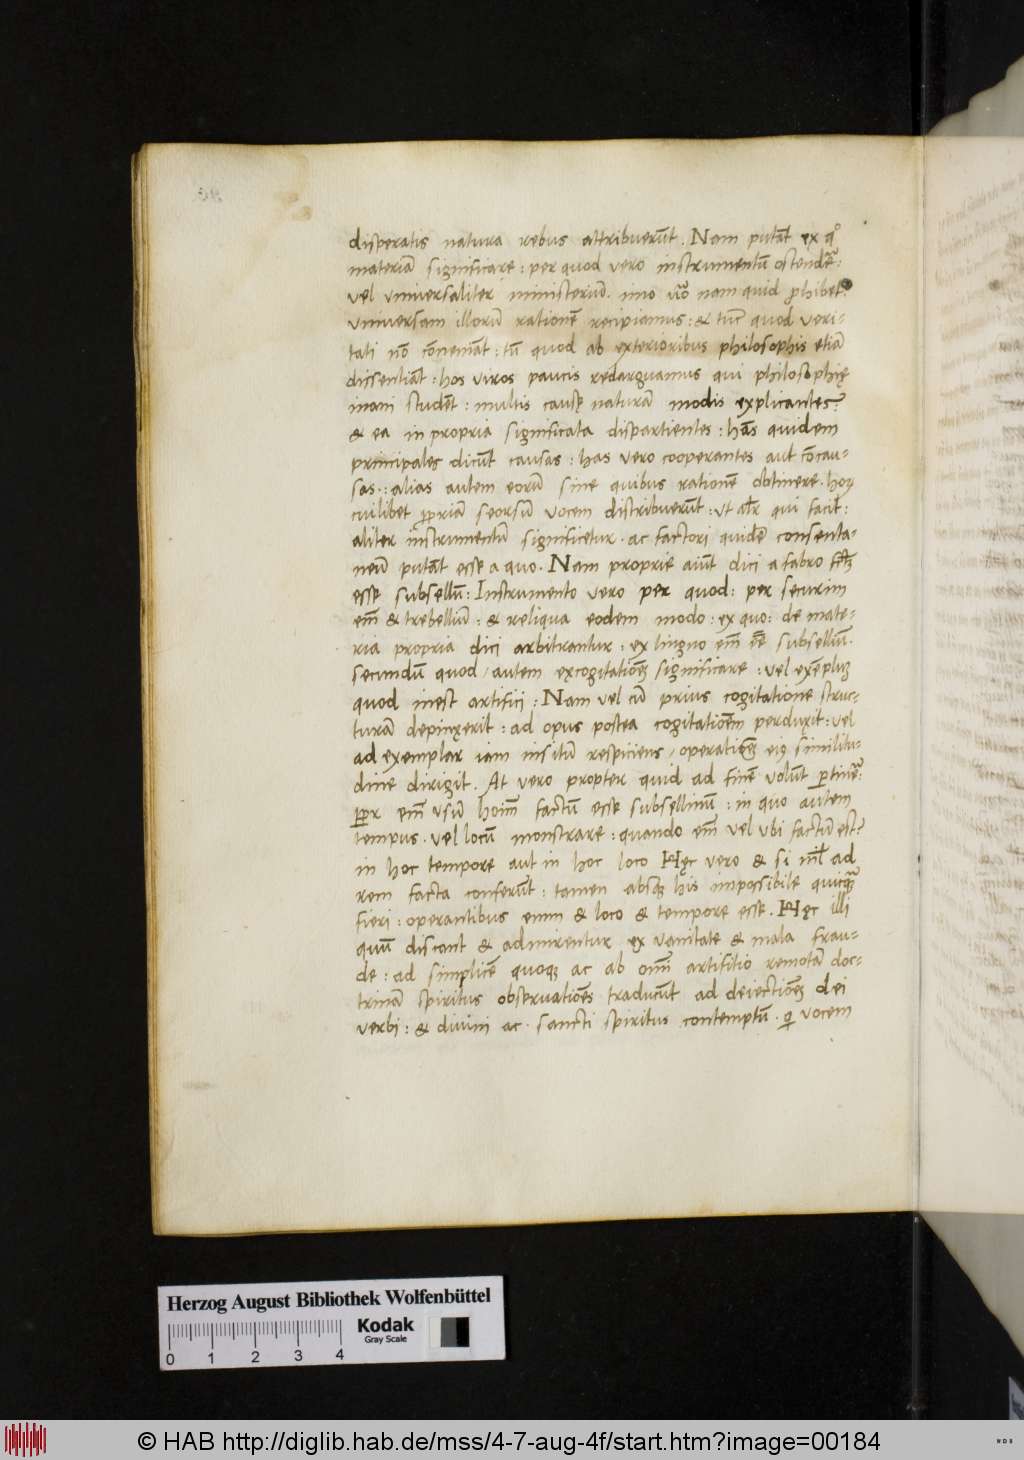 disperatis natura rebus attribuerūt. Nam putāt ex q̊
materiā significare: per quod vero instrumentū ostendēt:
vel universaliter ministeriū. imo nam quid ꝓhibet?
universam illorū rationē recipiamus: & tūc quod veri-
tati nō cōveniāt: tū quod ab exterioribus philosophis etiā
dissentiāt: hos viros paucis redarguamus qui philosophię
inani studēt: multis causę naturā modis explicantes?
& ea in propria significata dispartientes: hās quidem
principales dicūt causas: has vero cooperantes aut cōcau-
sas: alias autem eorū sine quibus rationē obtinere. hoꝝ
cuilibet ꝓpriā seorsū vocem distribuerūt: ut al̄r qui facit:
aliter instrumentū significetur. ac factori quidē consenta-
neū putāt esse a quo. Nam proprie aiūt dici a fabro
esse subselliū: Instrumento vero per quod: per securim
em̄ & trebelliū: & reliqua eodem modo: ex quo: de mate-
ria propria dici arbitrantur: ex lingno em̄ eē subselliū.
secundū quod autem excogitationē significare: vel exēplū
quod inest artifici: Nam vel cū prius cogitatione struc-
turā depinxerit: ad opus postea cogitationēm perduxit: vel
ad exemplar iam insitū respiciens operationē eiꝰ similitu-
dine dirigit. At vero propter quid ad finē volūt ꝑtinē:
ꝓpr em̄ usū hoīm factū esse subselliū: in quo autem
tempus. vel locū monstrare: quando em̄ vel ubi factū est?
in hoc tempore aut in hoc loco Hęc vero & si nīl ad
rem facta conferūt: tamen absqꝫ his impossibile quicqꝫ
fieri: operantibus enim & loco & tempore esse. Hęc illi
quū discant & admirentur ex vanitate & mala frau-
de: ad simplicē quoqꝫ ac ab om̄i artifitio remotā doc-
trinā spiritus observationēs traducūt ad deiectionē dei
verbi: & divini ac sancti spiritus contemptū. qi vocem
Herzog August Bibliothek Wolfenbüttel
0 1 2 3 4
Kodak
Gray Scale
© HAB http://diglib.hab.de/mss/4-7-aug-4f/start.htm?image=00184